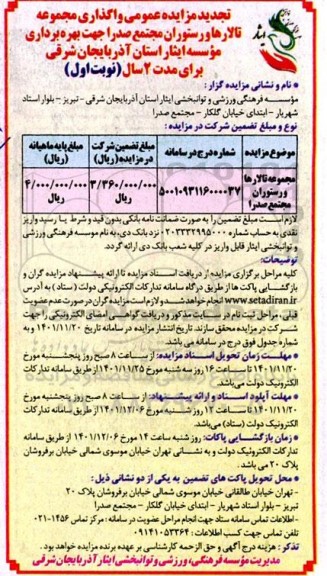 ایثار
تجدید مزایده عمومی واگذاری مجموعه
تالارها و رستوران مجتمع صدرا جهت بهره برداری
مؤسسه ایثار استان آذربایجان شرقی
برای مدت ۲ سال (نوبت اول)
• نام و نشانی مزایده گزار:
مؤسسه فرهنگی ورزشی و توانبخشی ایثار استان آذربایجان شرقی - تبریز - بلوار استاد
شهریار - ابتدای خیابان گلکار - مجتمع صدرا
نوع و مبلغ تضمین شرکت در مزایده:
موضوع مزایده شماره درج در سامانه مبلغ تضمین شرکت در مزایده (ریال) مبلغ پایه ماهیانه (ریال)
مجموعه تالارها و رستوران مجتمع صدرا ۵۰۰۱۰۹۳۱۱۶۰۰۰۰۳۷ ۳/۳۶۰/۰۰۰/۰۰۰ ۴/۰۰۰/۰۰۰/۰۰۰
لازم است مبلغ تضمین را به صورت ضمانت نامه بانکی بدون قید و شرط یا رسید واریز
نقدی به حساب شماره ۰۲۰۳۳۳۲۹۹۵۰۰۰ نزد بانک دی، به نام موسسه فرهنگی ورزشی
و توانبخشی ایثار قابل واریز در کلیه شعب بانک دی ارائه گردد.
توضیحات:
کلیه مراحل برگزاری مزایده از دریافت اسناد مزایده تا ارائه پیشنهاد مزایده گران و
بازگشایی پاکت ها از طریق درگاه سامانه تدارکات الکترونیکی دولت (ستاد) به آدرس
www.setadiran.ir انجام خواهد شد و لازم است مزایده گران در صورت عدم عضویت
قبلی، مراحل ثبت نام در سایت مذکور و دریافت گواهی امضای الکترونیکی را جهت
شرکت در مزایده محقق سازند. تاریخ انتشار مزایده در سامانه تاریخ ۱۴۰۱/۱۱/۲۰ به
شماره جدول فوق درج در سامانه می باشد.
• مهلت زمان تحویل اسناد مزایده: از ساعت ۸ صبح روز پنجشنبه مورخ
۱۴۰۱/۱۱/۲۰ تا ساعت ۱۶ روز سه شنبه مورخ ۱۴۰۱/۱۱/۲۵ از طریق سامانه تدارکات
الکترونیک دولت می باشد.
• مهلت آپلود اسناد و ارائه پیشنهاد: از ساعت ۸ صبح روز پنجشنبه مورخ
۱۴۰۱/۱۱/۲۰ تا ساعت ۱۲ روز شنبه مورخ ۱۴۰۱/۱۲/۰۶ از طریق سامانه تدارکات
الکترونیک دولت (ستاد) می باشد.
• زمان بازگشایی پاکات: روز شنبه ساعت ۱۴ مورخ ۱۴۰۱/۱۲/۰۶ از طریق سامانه
تدارکات الکترونیک دولت و به نشانی تهران خیابان موسوی شمالی خیابان برفروشان
پلاک ۲۰ می باشد.
• محل تحویل پاکت های تضمین به یکی از دو نشانی ذیل:
- تهران خیابان طالقانی خیابان موسوی شمالی خیابان برفروشان پلاک ۲۰
تبریز - بلوار استاد شهریار - ابتدای خیابان گلکار - مجتمع صدرا
- اطلاعات تماس سامانه ستاد جهت انجام مراحل عضویت در سامانه: مرکز تماس ۱۴۵۶-۰۲۱
تلفن تماس جهت کسب اطلاعات: ۰۹۱۴۱۰۵۳۳۶۴
تذکر: هزینه درج آگهی و حق الزحمه کارشناسی بر عهده برنده مزایده خواهد بود.
مدیریت مؤسسه فرهنگی، ورزشی و توانبخشی ایثار آذربایجان شرقی